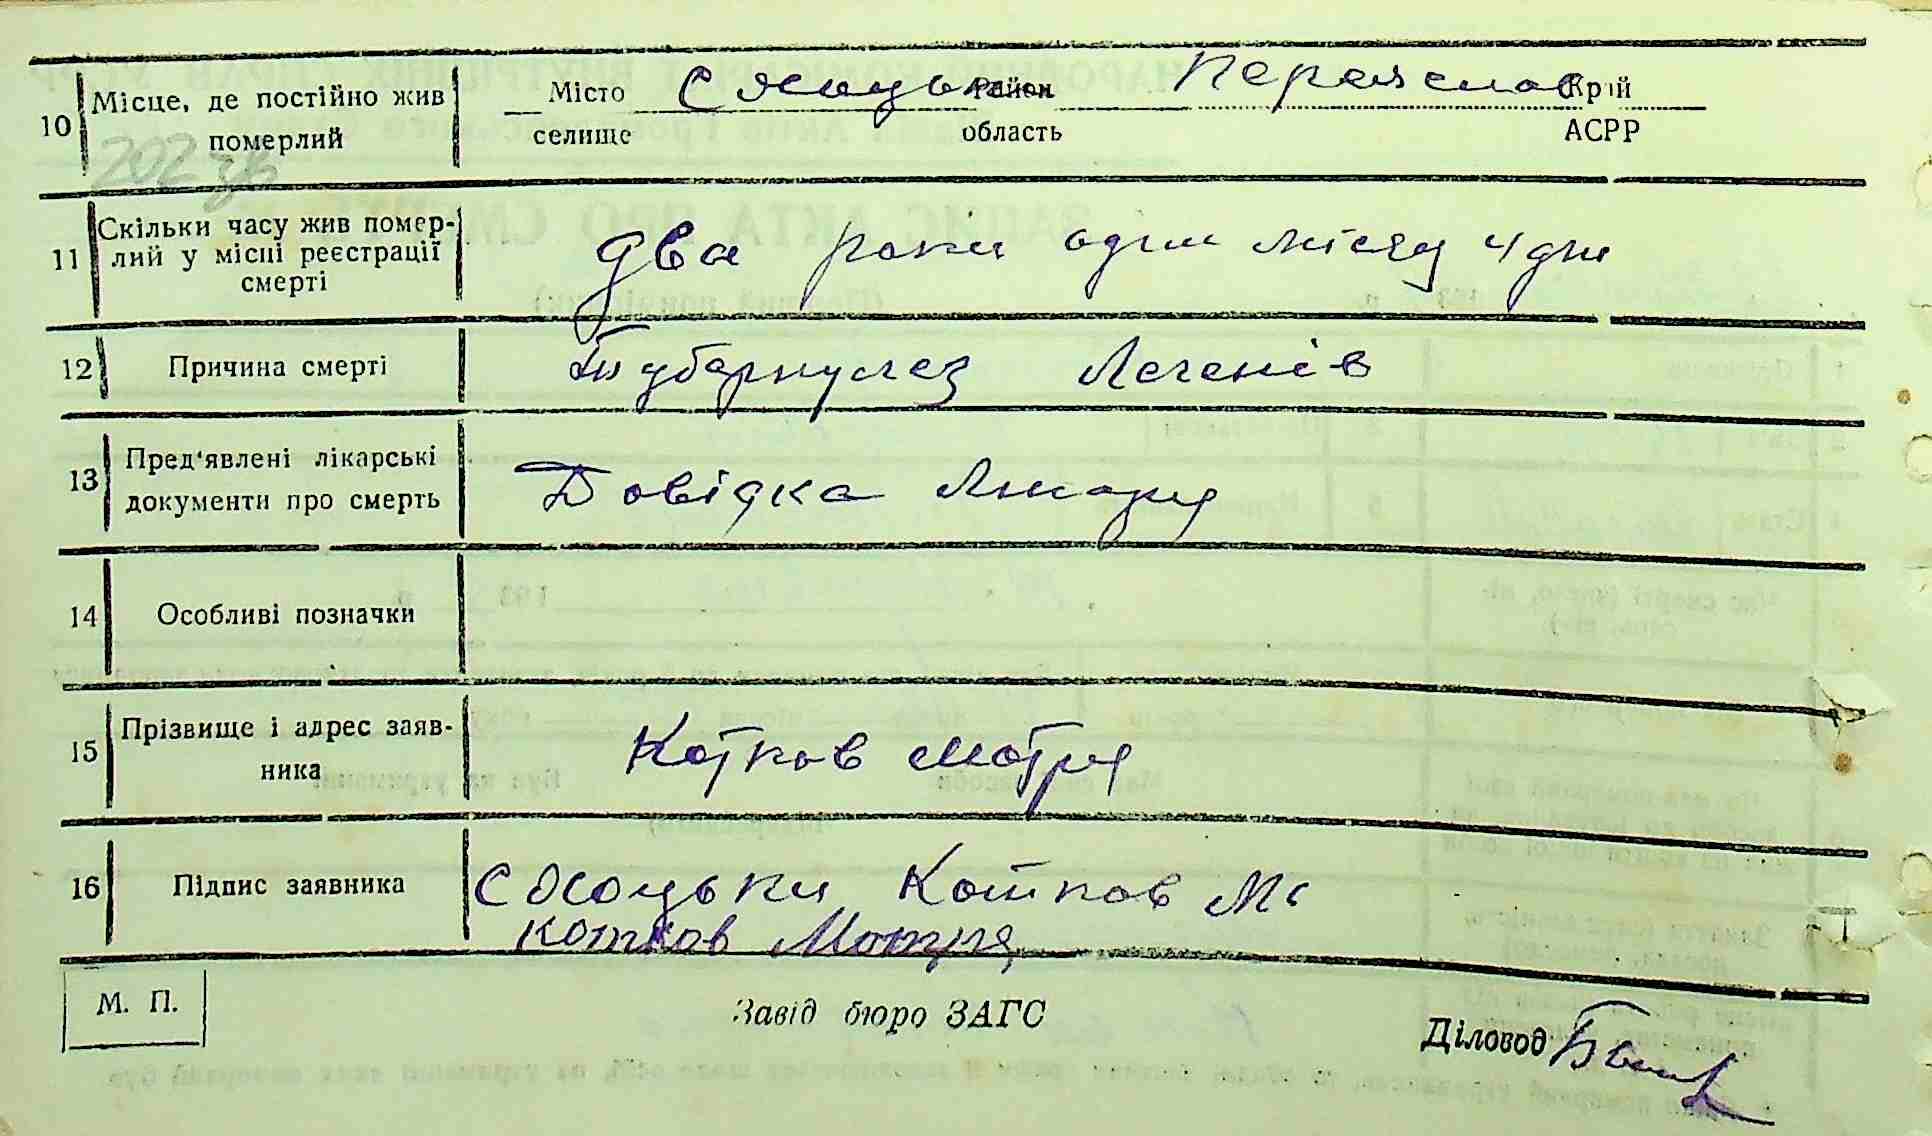 10 Місце, де постійно жив померлий
Місто селище
Район область
Переяслав
Крій АСРР
202 зв
11 Скільки часу жив померлий у місці реєстрації смерті
два роки один місяц 4 дні
12 Причина смерті
Туберкулез Легенів
13 Пред'явлені лікарські документи про смерть
Довідка Лікаря
14 Особливі позначки
15 Прізвище і адрес заявника
Котков Мотря
16 Підпис заявника
Котков
Котков Мотря
М. П.
Завід бюро ЗАГС
Діловод